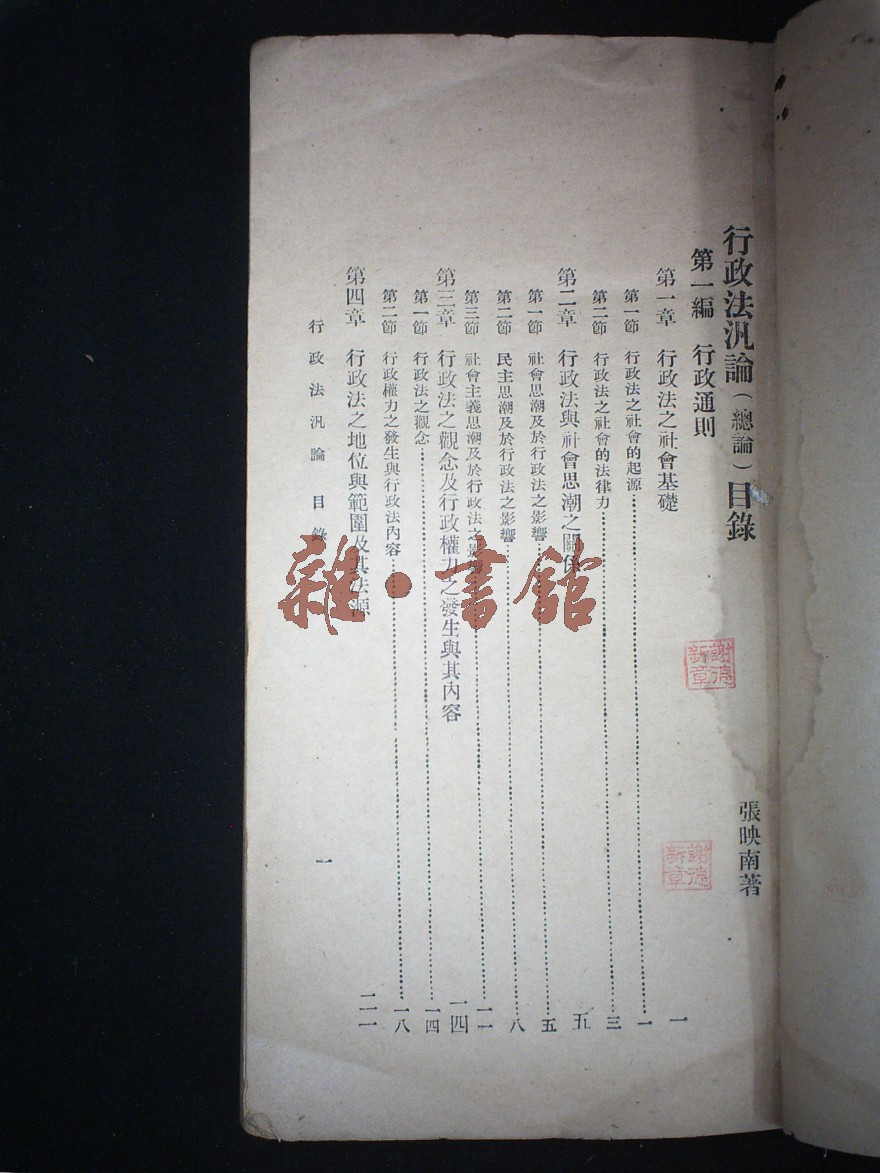 行政法汎論（總論）目錄
張映南著
第一編　行政通則
第一章　行政法之社會基礎　一
第一節　行政法之社會的起源…………一
第二節　行政法之社會的法律力…………三
第二章　行政法與社會思潮之關係　五
第一節　社會思潮及於行政法之影響…………五
第二節　民主思潮及於行政法之影響…………八
第三節　社會主義思潮及於行政法之影響…………一一
第三章　行政法之觀念及行政權力之發生與其內容　一四
第一節　行政法之觀念…………一四
第二節　行政權力之發生與行政法內容…………一八
第四章　行政法之地位與範圍及其法源　二一
行政法汎論　目錄　一
謝德新章
謝德新章
雜・書館